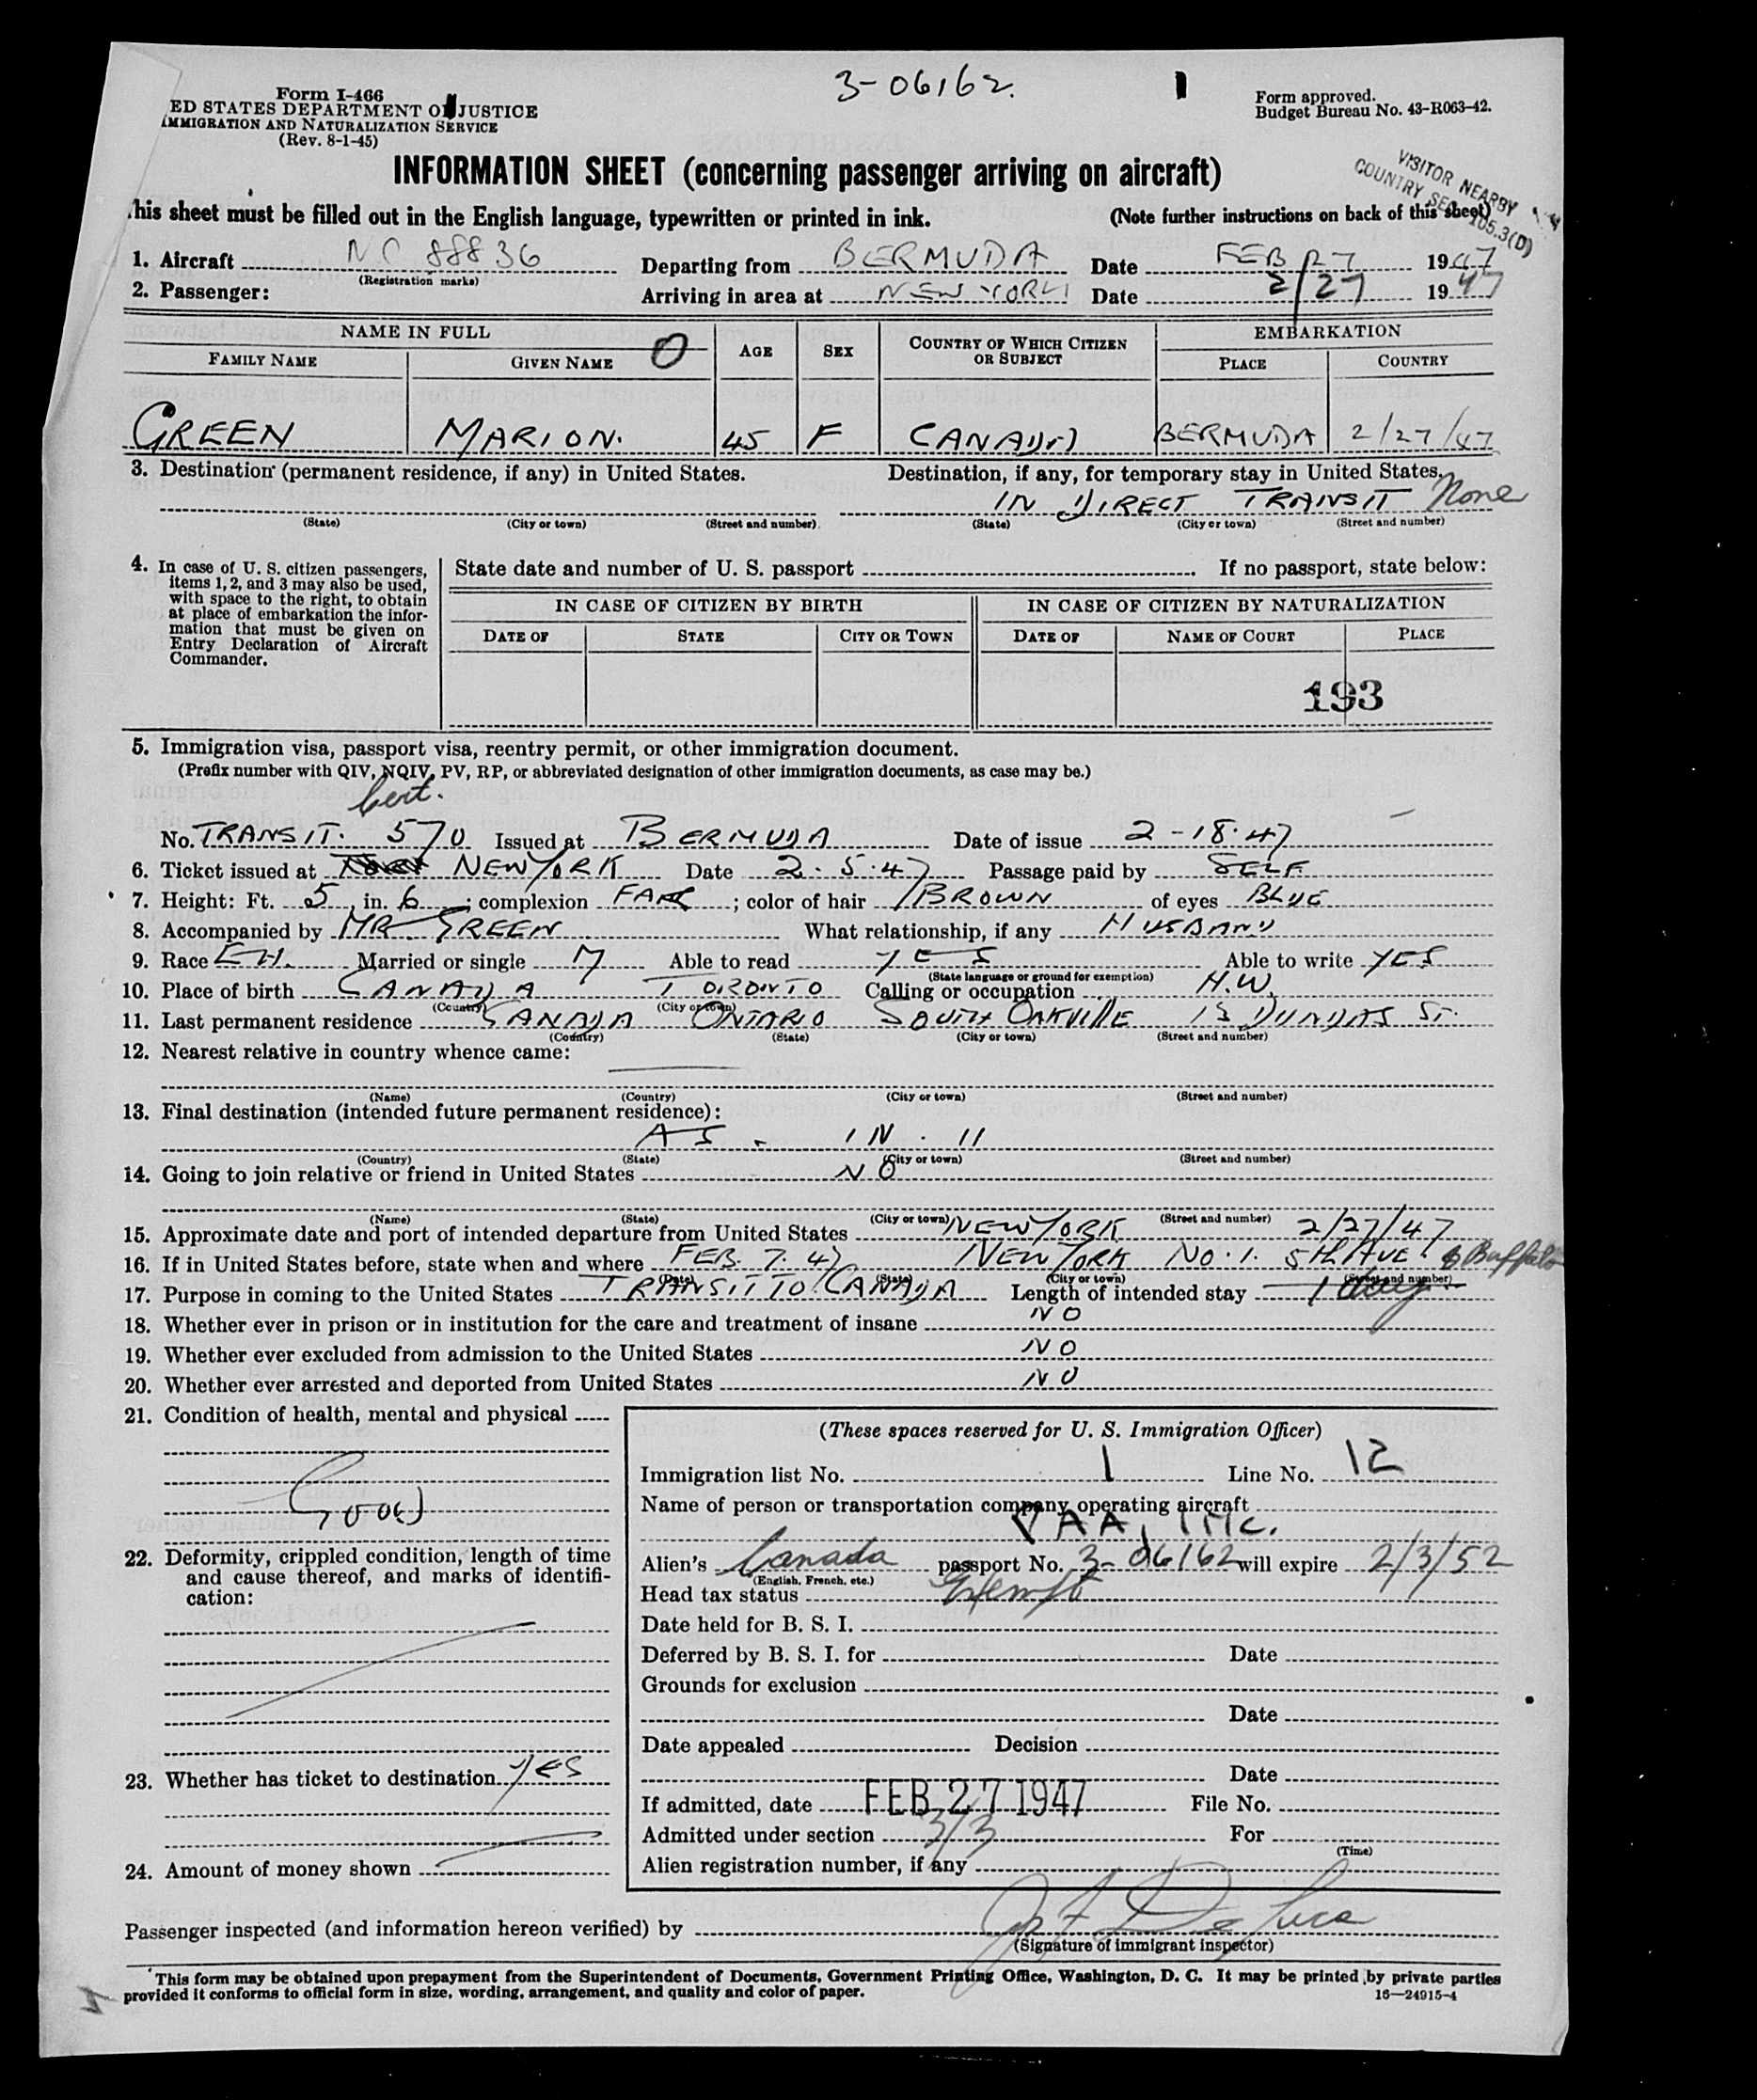 3-06162.
Form I-466
ED STATES DEPARTMENT OF JUSTICE
IMMIGRATION AND NATURALIZATION SERVICE
(Rev. 8-1-45)
Form approved.
Budget Bureau No. 43-R063-42.
INFORMATION SHEET (concerning passenger arriving on aircraft)
VISITOR NEARBY
COUNTRY SEC. 105.3(D)
his sheet must be filled out in the English language, typewritten or printed in ink. (Note further instructions on back of this sheet)
1. Aircraft NC 88836 Departing from BERMUDA Date FEB 27 1947
(Registration marks)
2. Passenger: Arriving in area at NEW YORK Date 2/27 1947
NAME IN FULL O AGE SEX COUNTRY OF WHICH CITIZEN OR SUBJECT EMBARKATION
FAMILY NAME GIVEN NAME PLACE COUNTRY
GREEN MARION. 45 F CANADA BERMUDA 2/27/47
3. Destination (permanent residence, if any) in United States. Destination, if any, for temporary stay in United States.
IN DIRECT TRANSIT None
(State) (City or town) (Street and number) (State) (City or town) (Street and number)
4. In case of U. S. citizen passengers, items 1, 2, and 3 may also be used, with space to the right, to obtain at place of embarkation the information that must be given on Entry Declaration of Aircraft Commander.
State date and number of U. S. passport If no passport, state below:
IN CASE OF CITIZEN BY BIRTH IN CASE OF CITIZEN BY NATURALIZATION
DATE OF STATE CITY OR TOWN DATE OF NAME OF COURT PLACE
193
5. Immigration visa, passport visa, reentry permit, or other immigration document.
(Prefix number with QIV, NQIV, PV, RP, or abbreviated designation of other immigration documents, as case may be.)
Cert.
No. TRANSIT. 570 Issued at BERMUDA Date of issue 2-18-47
6. Ticket issued at NEW YORK Date 2.5.47 Passage paid by SELF
7. Height: Ft. 5, in. 6; complexion FAIR; color of hair BROWN of eyes BLUE
8. Accompanied by MR GREEN What relationship, if any HUSBAND
9. Race EN. Married or single M Able to read YES Able to write YES
(State language or ground for exemption)
10. Place of birth CANADA TORONTO Calling or occupation H.W.
(Country) (City or town)
11. Last permanent residence CANADA ONTARIO SOUTH OAKVILLE 13 DUNDAS ST.
(Country) (State) (City or town) (Street and number)
12. Nearest relative in country whence came:
(Name) (Country) (City or town) (Street and number)
13. Final destination (intended future permanent residence):
AS - IN . 11
(Country) (State) (City or town) (Street and number)
14. Going to join relative or friend in United States NO
(Name) (State) (City or town) (Street and number)
15. Approximate date and port of intended departure from United States NEW YORK 2/27/47
16. If in United States before, state when and where FEB. 7. 47 NEW YORK NO. 1. 5th AVE Buffalo
(Date) (State) (City or town) (Street and number)
17. Purpose in coming to the United States TRANSIT TO CANADA Length of intended stay 1 day
18. Whether ever in prison or in institution for the care and treatment of insane NO
19. Whether ever excluded from admission to the United States NO
20. Whether ever arrested and deported from United States NO
21. Condition of health, mental and physical
Good
22. Deformity, crippled condition, length of time and cause thereof, and marks of identification:
23. Whether has ticket to destination YES
24. Amount of money shown
(These spaces reserved for U. S. Immigration Officer)
Immigration list No. 1 Line No. 12
Name of person or transportation company operating aircraft
PAA, INC.
Alien's Canada passport No. 3-06162 will expire 2/3/52
(English, French, etc.)
Head tax status Exempt
Date held for B. S. I.
Deferred by B. S. I. for Date
Grounds for exclusion
Date
Date appealed Decision
Date
If admitted, date FEB 27 1947 File No.
Admitted under section 3/3 For
(Time)
Alien registration number, if any
Passenger inspected (and information hereon verified) by
(Signature of immigrant inspector)
This form may be obtained upon prepayment from the Superintendent of Documents, Government Printing Office, Washington, D. C. It may be printed by private parties
provided it conforms to official form in size, wording, arrangement, and quality and color of paper. 16—24915-4